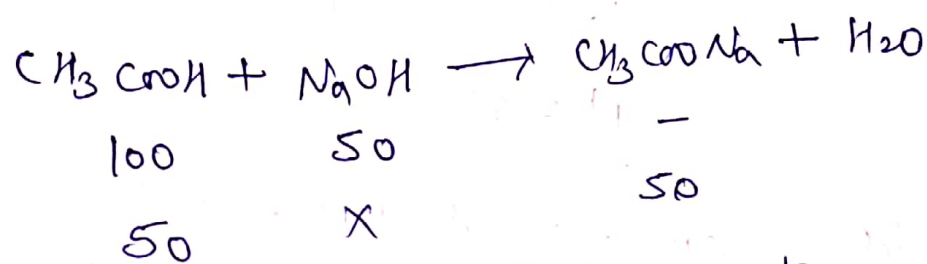 CH3 COOH + NaOH → CH3 COONa + H2O
100 50 -
50 X 50